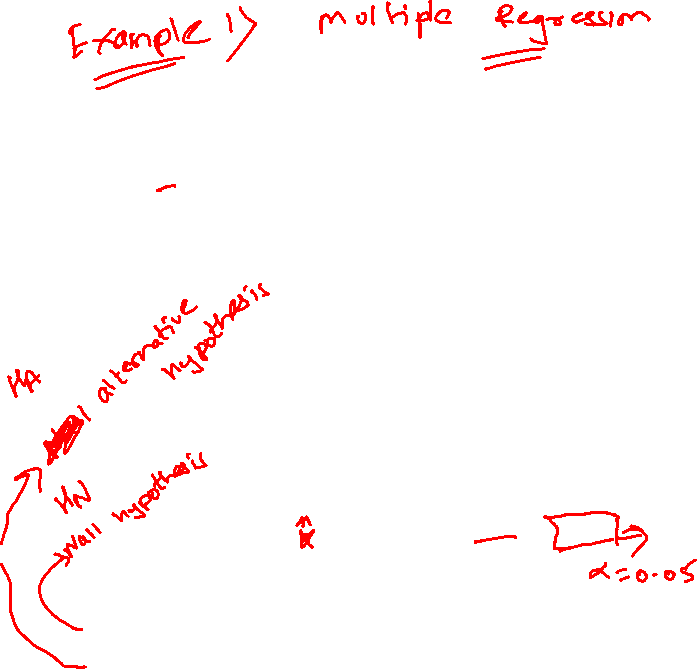 Example 1) multiple Regression
alternative
hypothesis
HA
HN
Nall hypothesis
α=0.05